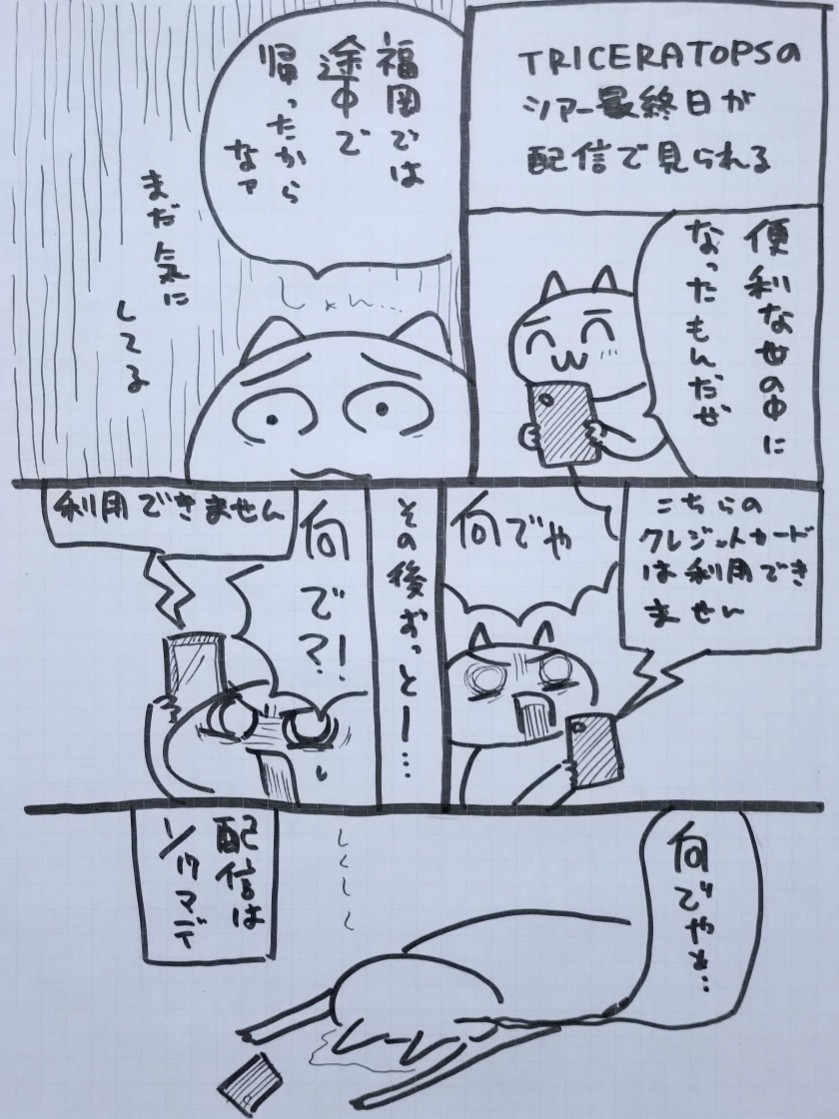 TRICERATOPSの
ツアー最終日が
配信で見られる
便利な世の中に
なったもんだぜ
福岡では
途中で
帰ったから
なァ
しょん…
まだ気に
してる
こちらの
クレジットカード
は利用でき
ません
何でや
その後ずっとー…
何で?!
利用できません
何でやぁ…
しくしく
配信は
1/17マデ